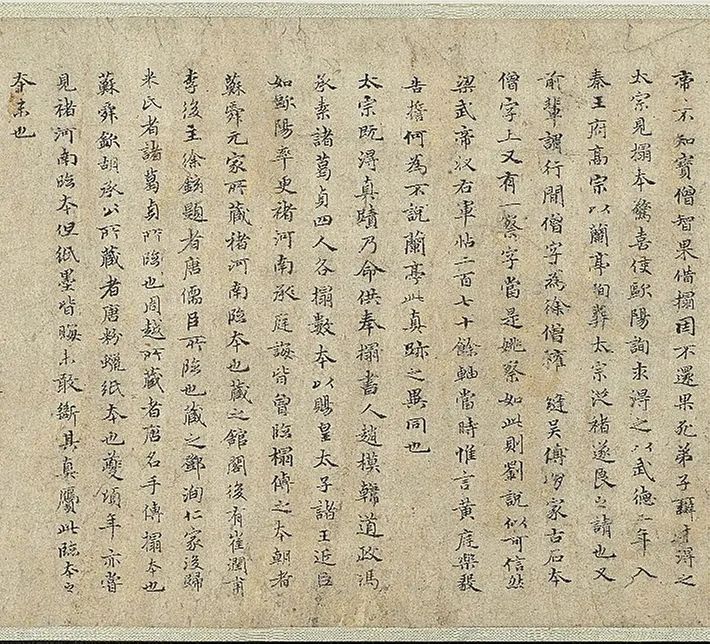 帝不知寶僧智果借搨因不還果死弟子辯才得之
太宗見搨本驚喜使歐陽詢求得之以武德二年入
秦王府高宗以蘭亭殉葬太宗從褚遂良之請也又
前輩謂行間僧字為徐僧權縫吴傅朋家古石本
僧字上又有一察字當是姚察如此則劉說似可信然
梁武帝收右軍帖二百七十餘軸當時惟言黄庭樂毅
告誓何為不說蘭亭此真跡之異同也
太宗既得真蹟乃命供奉搨書人趙模韓道政馮
承素諸葛貞四人各搨數本以賜皇太子諸王近臣
如歐陽率更褚河南承庭誨皆曾臨搨傳之本朝者
蘇舜元家所藏褚河南臨本也藏之館閣後有崔潤甫
李後主徐鉉題者唐儒臣所臨也藏之鄧洵仁家後歸
米氏者諸葛貞所臨也周越所藏者唐名手傳搨本也
蘇舜欽胡承公所藏者唐粉蠟紙本也夔頃年亦嘗
見褚河南臨本但紙墨皆晦未敢斷其真贗此臨本之
夲末也